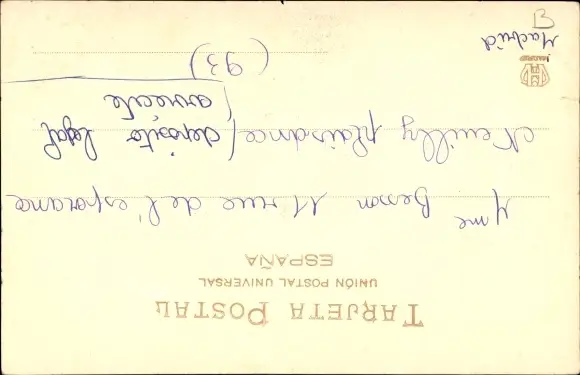 TARJETA POSTAL
UNIÓN POSTAL UNIVERSAL
ESPAÑA
Mme Besson 11 rue de l'esperance
Neuilly plaisance (depósito legal
(93)
Madrid
B
MADRID